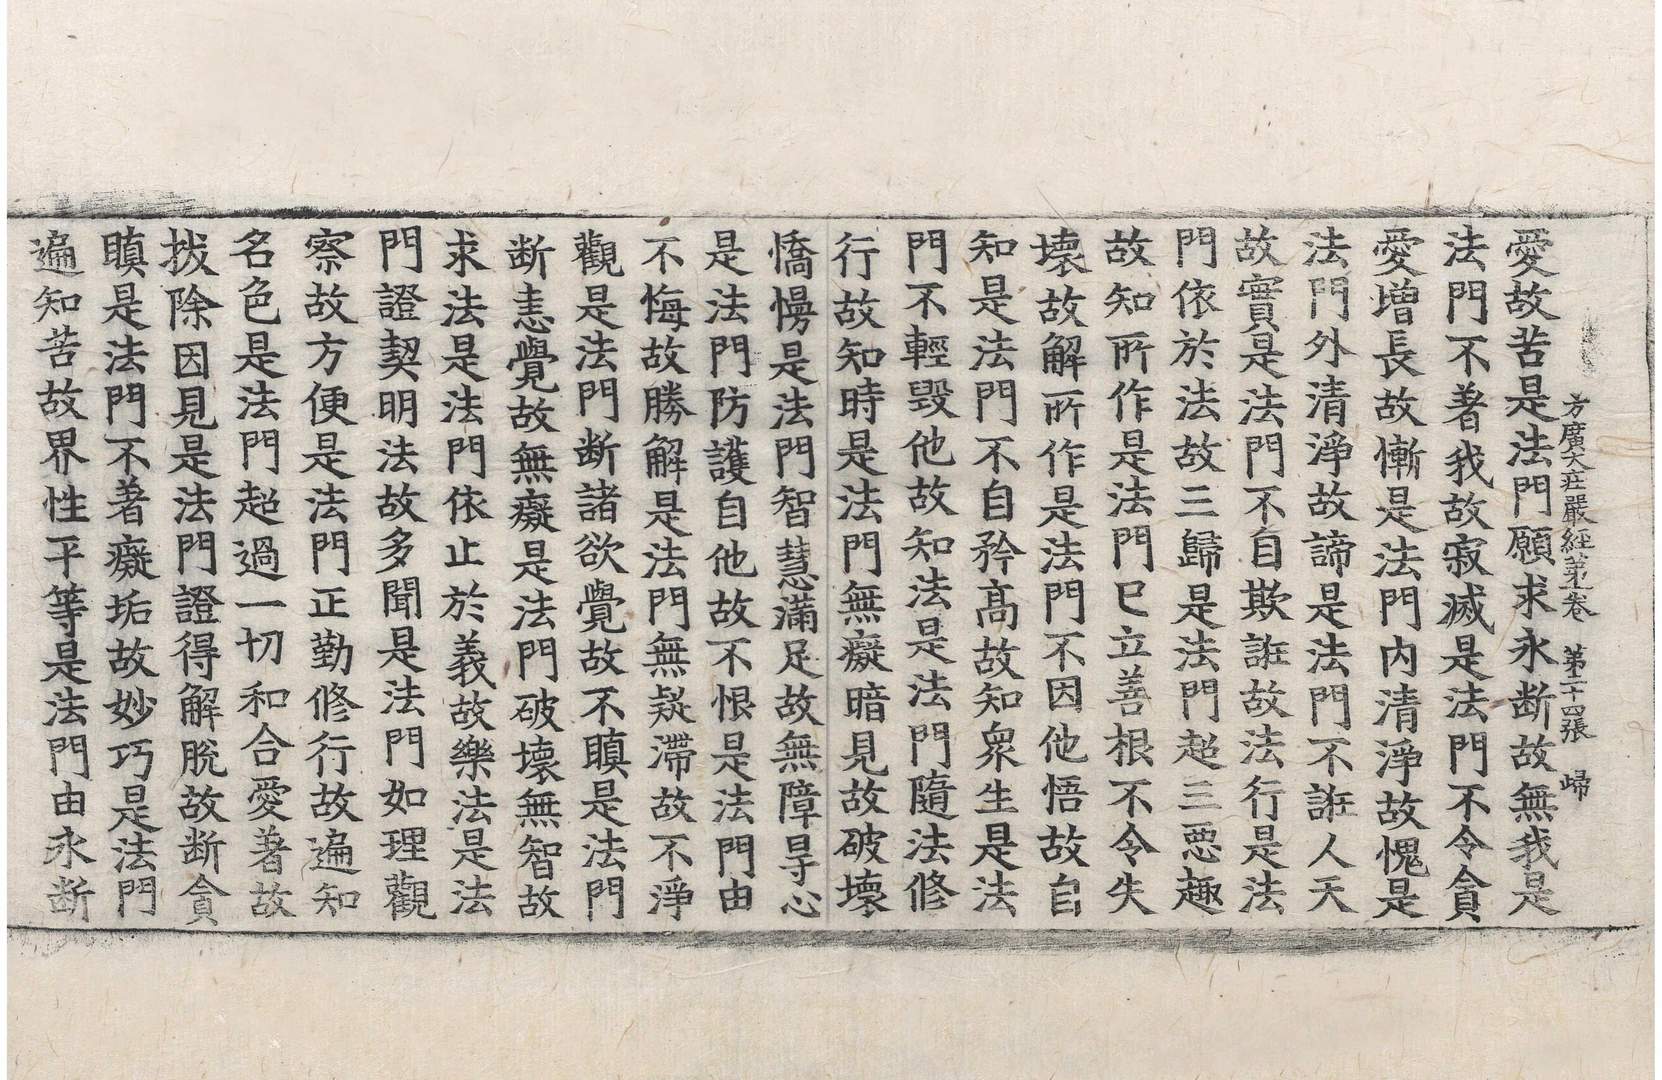 方廣大莊嚴經第一卷　第二十四張　歸
愛故苦是法門願求永断故無我是
法門不著我故寂滅是法門不令貪
愛增長故慚是法門內清淨故愧是
法門外清淨故諦是法門不誑人天
故實是法門不自欺誑故法行是法
門依於法故三歸是法門超三惡趣
故知所作是法門已立善根不令失
壞故解所作是法門不因他悟故自
知是法門不自矜高故知衆生是法
門不輕毀他故知法是法門隨法修
行故知時是法門無癡暗見故破壞
憍慢是法門智慧滿足故無障㝵心
是法門防護自他故不恨是法門由
不悔故勝解是法門無疑滯故不淨
觀是法門断諸欲覺故不瞋是法門
断恚覺故無癡是法門破壞無智故
求法是法門依止於義故樂法是法
門證契明法故多聞是法門如理觀
察故方便是法門正勤修行故遍知
名色是法門超過一切和合愛著故
拔除因見是法門證得解脫故断貪
瞋是法門不著癡垢故妙巧是法門
遍知苦故界性平等是法門由永断